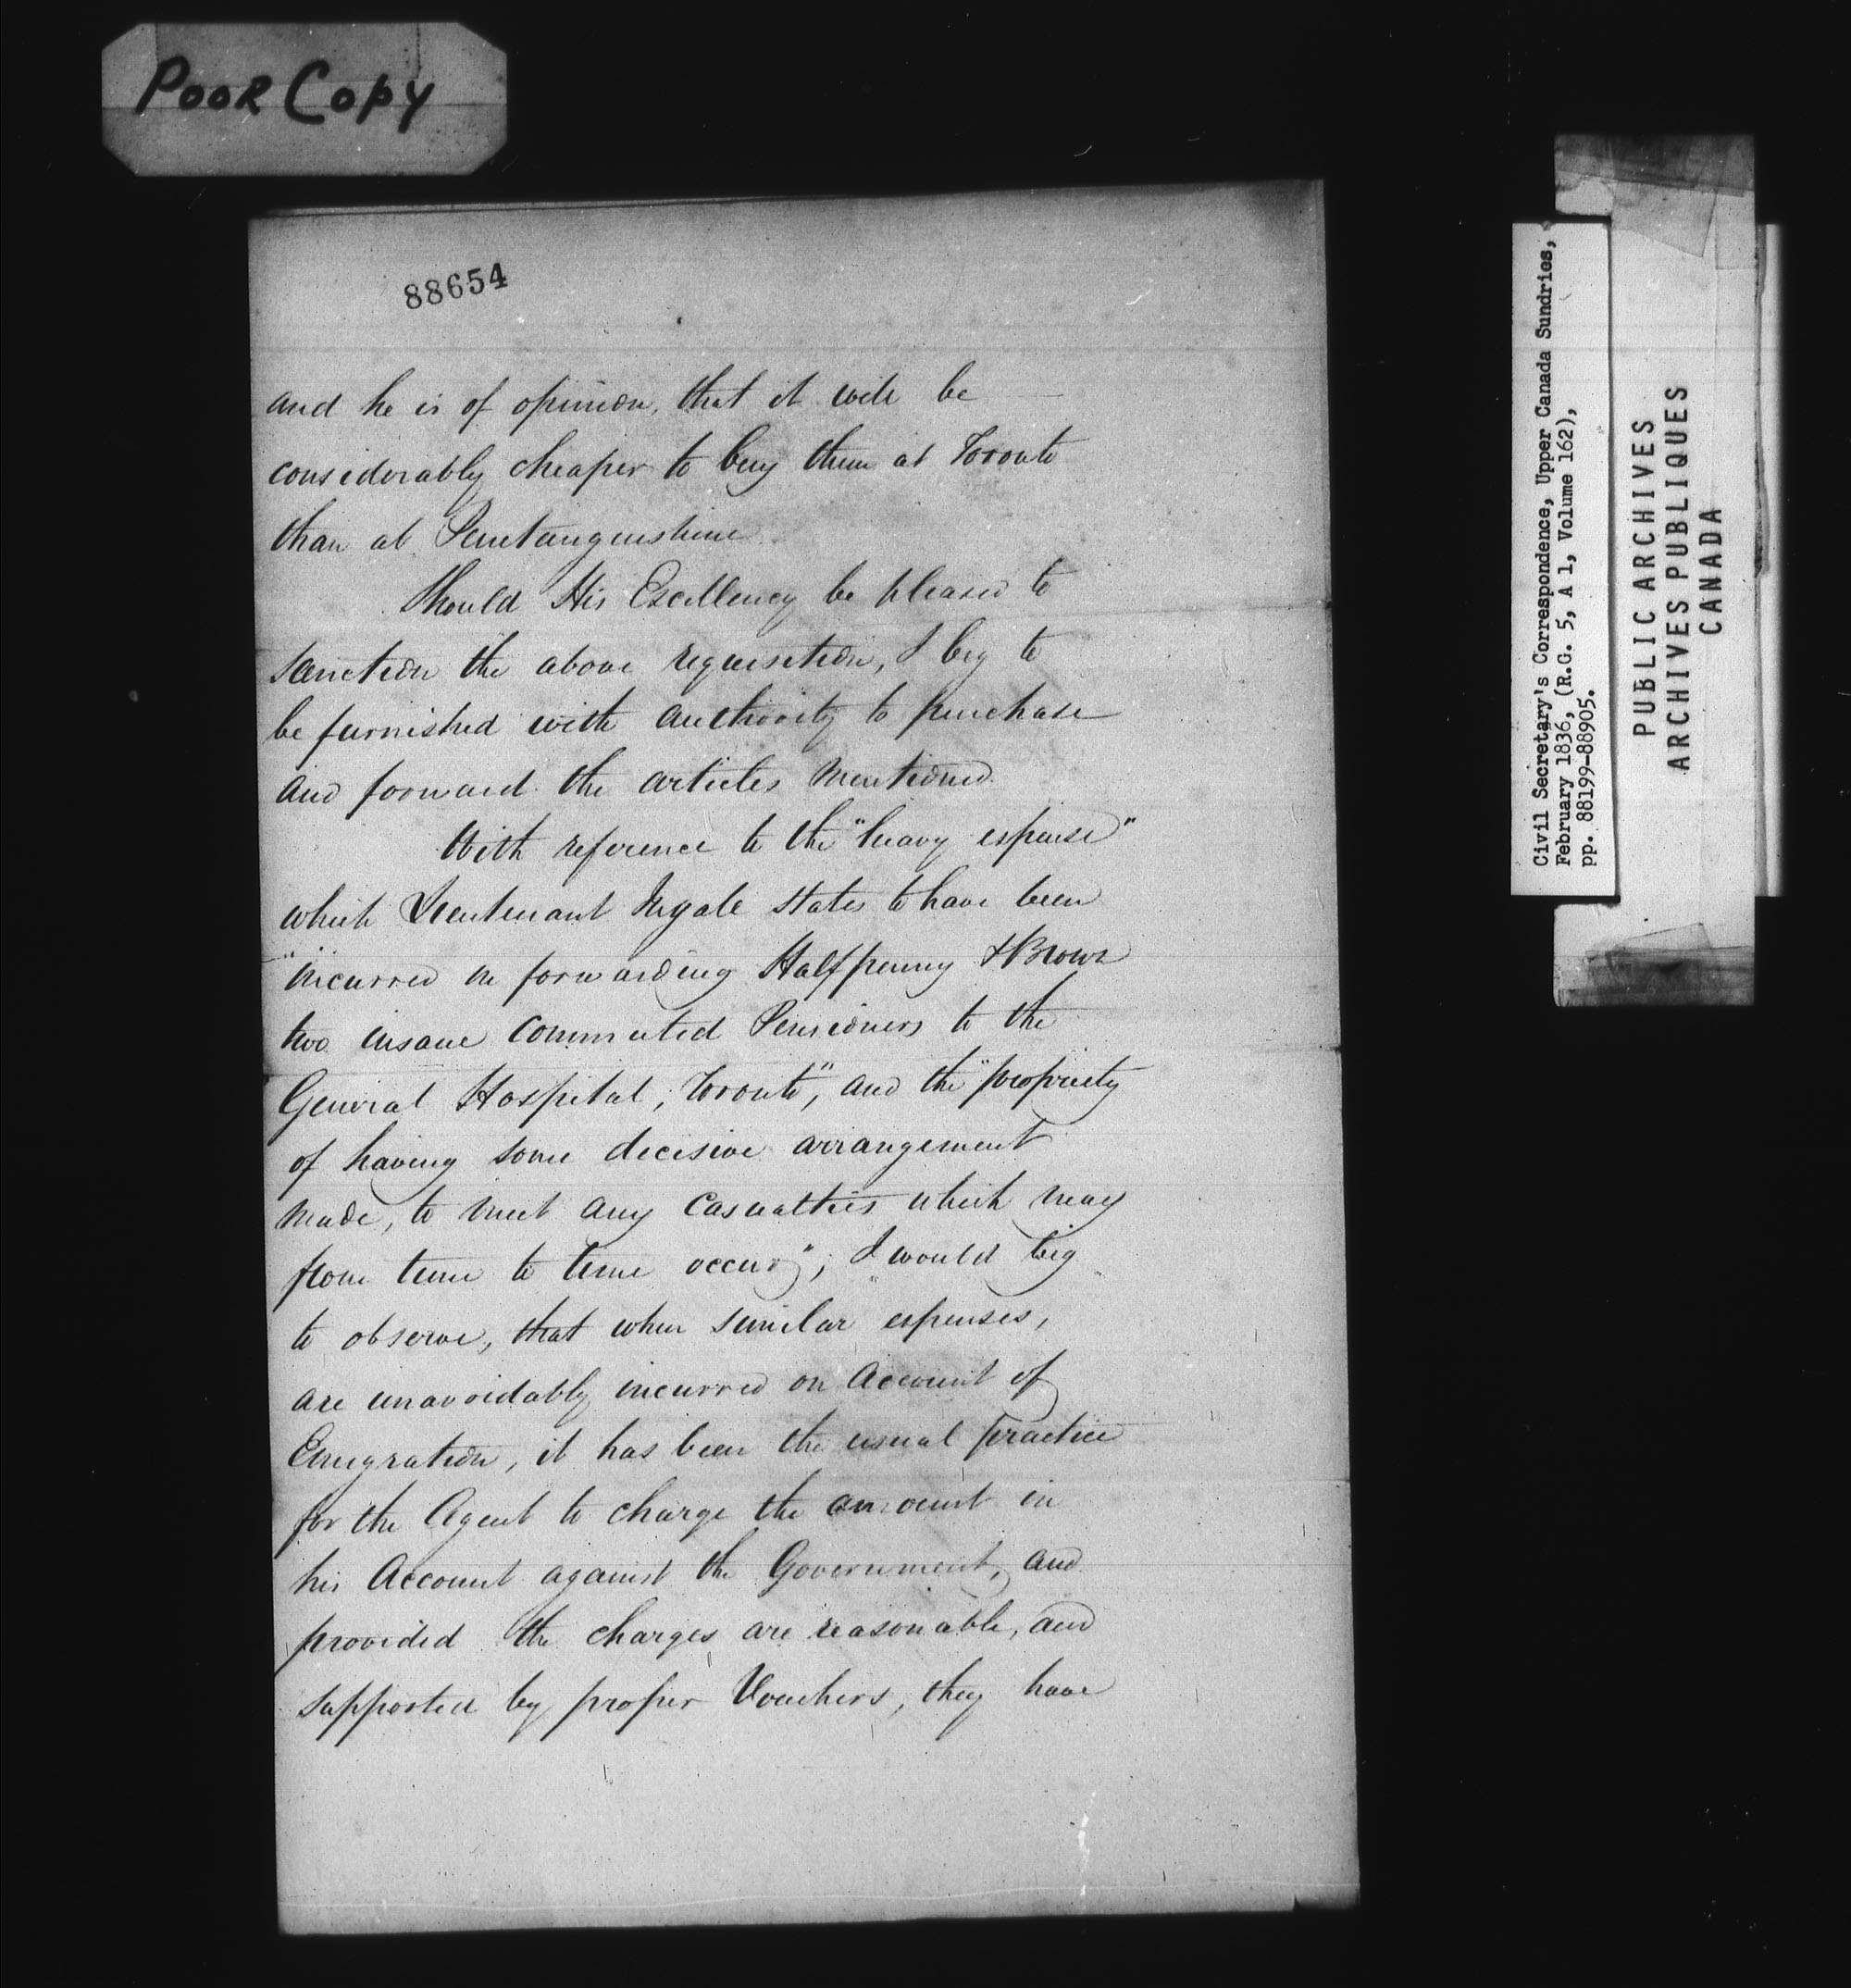 Poor Copy
88654
and he is of opinion, that it will be
considerably cheaper to buy them at Toronto
than at Penetanguishine
Should His Excellency be pleased to
sanction the above requisition, I beg to
be furnished with authority to purchase
and forward the articles mentioned.
With reference to the "heavy expense"
which Lieutenant Ingall states to have been
"incurred in forwarding Halfpenny & Brown
two insane Commuted Pensioners to the
General Hospital, Toronto", and the "propriety
of having some decisive arrangement
made, to meet any Casualties which may
from time to time occur"; I would beg
to observe, that when similar expenses,
are unavoidably incurred on Account of
Emigration, it has been the usual practice
for the Agent to charge the amount in
his Account against the Government, and
provided the charges are reasonable, and
supported by proper Vouchers, they have
Civil Secretary's Correspondence, Upper Canada Sundries,
February 1836, (R.G. 5, A 1, Volume 162),
pp. 88199-88905.
PUBLIC ARCHIVES
ARCHIVES PUBLIQUES
CANADA